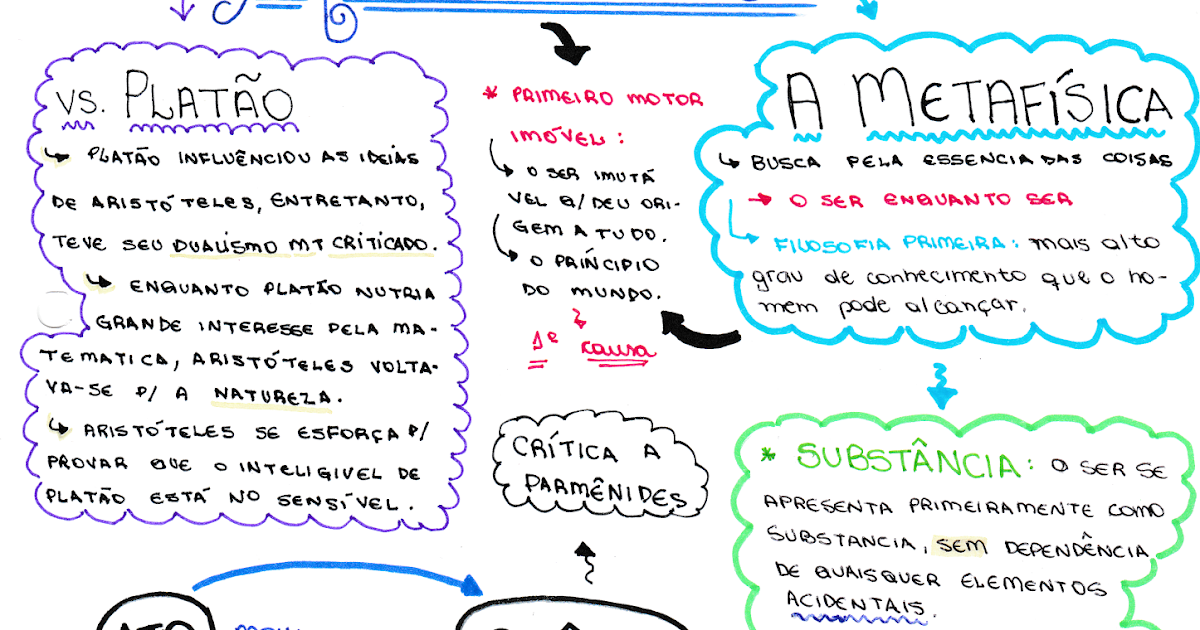 VS. PLATÃO
↳ PLATÃO INFLUÊNCIOU AS IDEIAS
DE ARISTÓTELES, ENTRETANTO,
TEVE SEU DUALISMO MT CRITICADO.
↳ ENQUANTO PLATÃO NUTRIA
GRANDE INTERESSE PELA MA-
TEMATICA, ARISTÓTELES VOLTA-
VA-SE P/ A NATUREZA.
↳ ARISTÓTELES SE ESFORÇA P/
PROVAR QUE O INTELIGIVEL DE
PLATÃO ESTÁ NO SENSÍVEL.
* PRIMEIRO MOTOR
IMÓVEL:
O SER IMUTÁ
VEL Q/ DEU ORI-
GEM A TUDO.
O PRÍNCIPIO
DO MUNDO.
1ª causa
A METAFÍSICA
↳ BUSCA PELA ESSENCIA DAS COISAS
→ O SER ENQUANTO SER
FILOSOFIA PRIMEIRA: mais alto
grau de conhecimento que o ho-
mem pode alcançar.
CRÍTICA A
PARMÊNIDES
* SUBSTÂNCIA: O SER SE
APRESENTA PRIMEIRAMENTE COMO
SUBSTANCIA, SEM DEPENDÊNCIA
DE QUAISQUER ELEMENTOS
ACIDENTAIS.
ATO